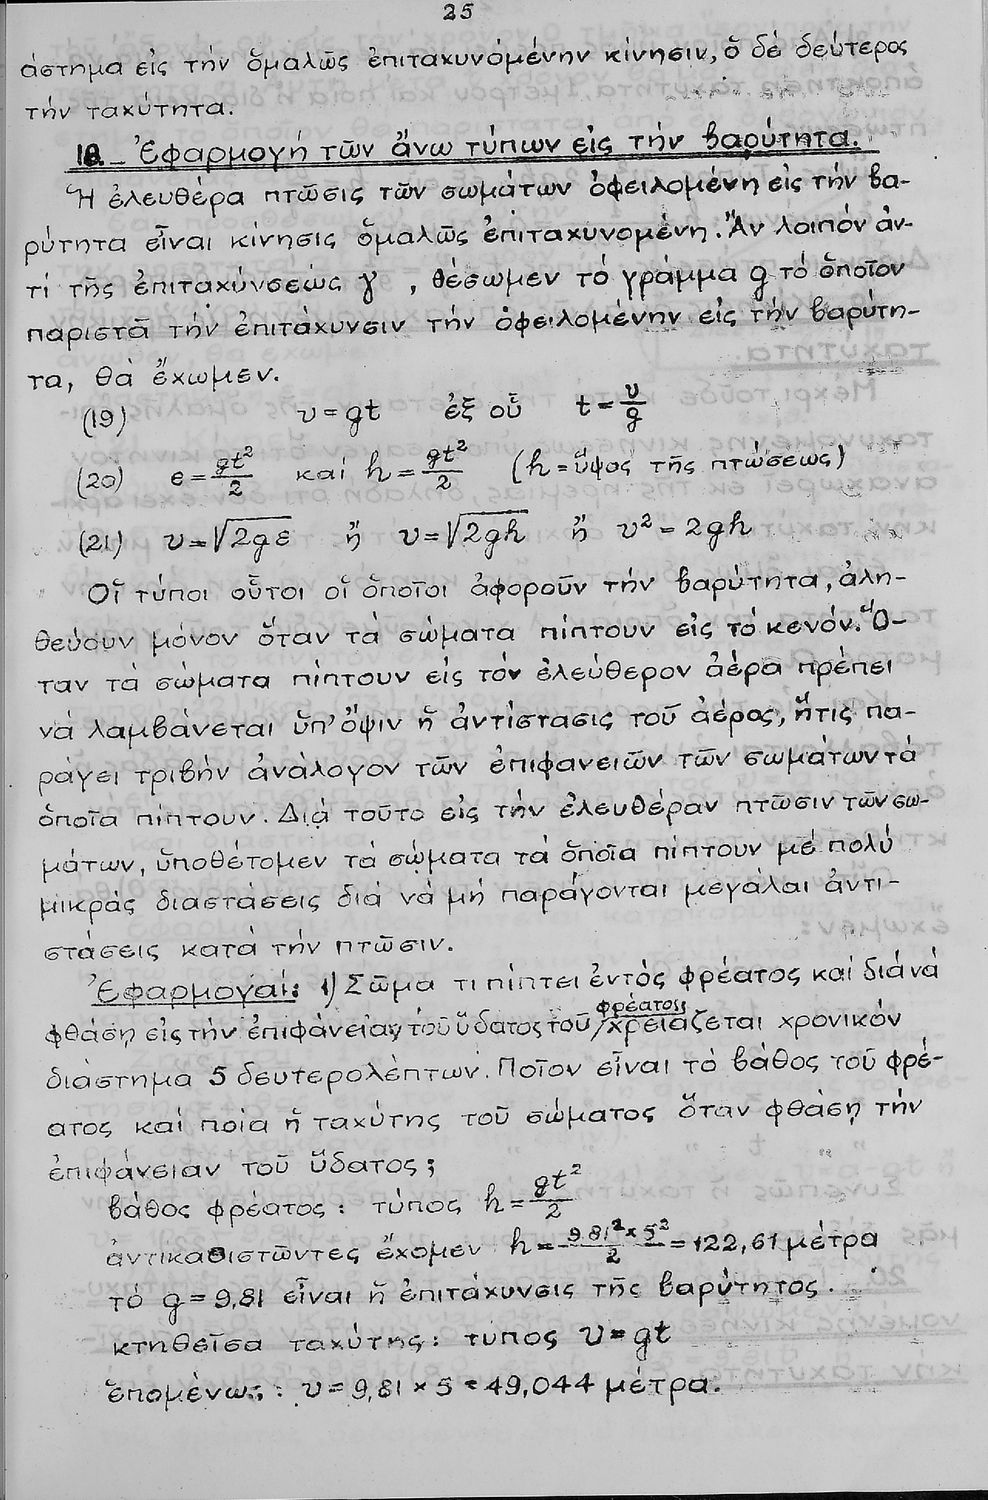 25
άστημα εἰς τήν ὁμαλῶς ἐπιταχυνόμένην κίνησιν, ὁ δέ δεύτερος
τήν ταχύτητα.
18. Ἐφαρμογή τῶν ἄνω τύπων εἰς τήν βαρύτητα.
Ἡ ἐλευθέρα πτῶσις τῶν σωμάτων ὀφειλομένη εἰς τήν βα-
ρύτητα εἶναι κίνησις ὁμαλῶς ἐπιταχυνομένη. Ἄν λοιπόν ἀν-
τί τῆς ἐπιταχύνσεώς γ , θέσωμεν τό γράμμα g τό ὁποῖον
παριστᾶ τήν ἐπιτάχυνσιν τήν ὀφειλομένην εἰς τήν βαρύτη-
τα, θά ἔχωμεν.
(19) υ = gt ἐξ οὗ t = υ/g
(20) e = gt²/2 καί h = gt²/2 (h = ὕψος τῆς πτώσεως)
(21) υ = √2gε ἤ υ = √2gh ἤ υ² = 2gh
Οἵ τύποι οὗτοι οἵ ὁποῖοι ἀφοροῦν τήν βαρύτητα, ἀλη-
θεύουν μόνον ὅταν τά σώματα πίπτουν εἰς τό κενόν. Ὅ-
ταν τά σώματα πίπτουν εἰς τόν ἐλεύθερον ἀέρα πρέπει
νά λαμβάνεται ὑπ' ὄψιν ἡ ἀντίστασις τοῦ ἀέρος, ἥτις πα-
ράγει τριβήν ἀνάλογον τῶν ἐπιφανειῶν τῶν σωμάτων τά
ὁποῖα πίπτουν. Διά τοῦτο εἰς τήν ἐλευθέραν πτῶσιν τῶν σω-
μάτων, ὑποθέτομεν τά σώματα τά ὁποῖα πίπτουν μέ πολύ
μικράς διαστάσεις διά νά μή παράγονται μεγάλαι ἀντι-
στάσεις κατά τήν πτῶσιν.
Ἐφαρμογαί: 1) Σῶμα τι πίπτει ἐντός φρέατος καί διά νά
φθάσῃ εἰς τήν ἐπιφάνειαν τοῦ ὕδατος τοῦ φρέατος χρειάζεται χρονικόν
διάστημα 5 δευτερολέπτων. Ποῖον εἶναι τό βάθος τοῦ φρέ-
ατος καί ποία ἡ ταχύτης τοῦ σώματος ὅταν φθάσῃ τήν
ἐπιφάνειαν τοῦ ὕδατος;
βάθος φρέατος: τύπος h = gt²/2
ἀντικαθιστῶντες ἔχομεν h = 9.81² × 5²/2 = 122,61 μέτρα
τό g = 9,81 εἶναι ἡ ἐπιτάχυνσις τῆς βαρύτητος.
κτηθεῖσα ταχύτης: τύπος υ = gt
ἑπομένως: υ = 9,81 × 5 = 49,044 μέτρα.